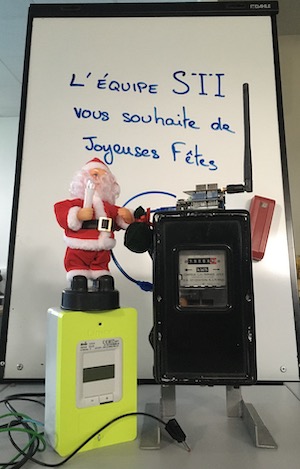 L'ÉQUIPE STI
vous souhaite de
Joyeuses Fêtes
kWh